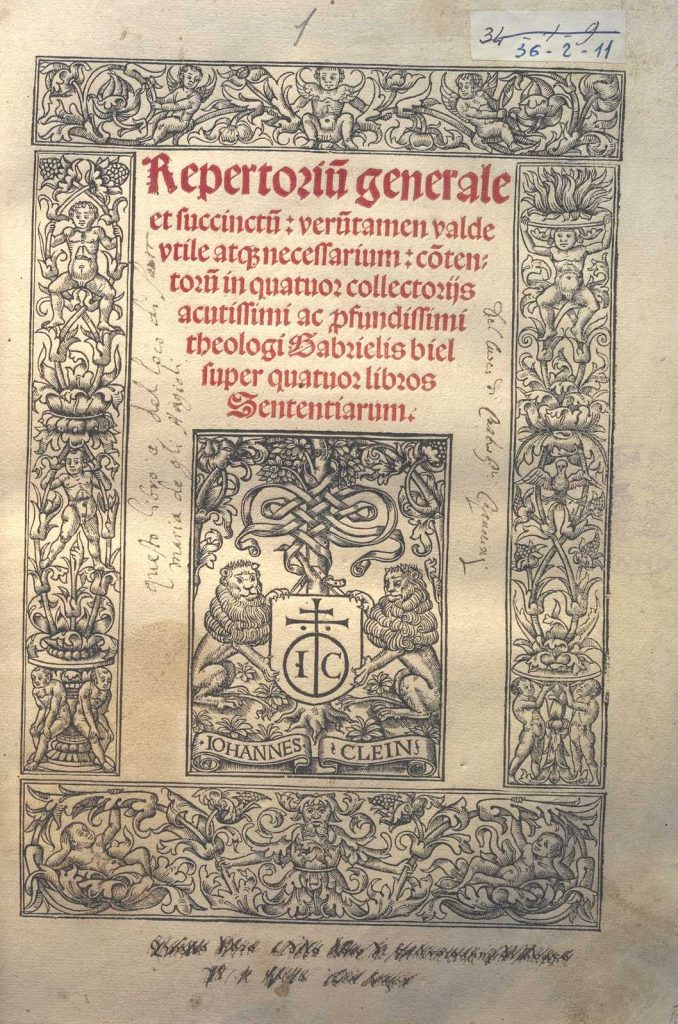 1
34-1-9
36-2-11
Repertoriū generale
et succinctū : verūtamen valde
vtile atqꝫ necessarium : cōten-
torū in quatuor collectorijs
acutissimi ac ꝓfundissimi
theologi Gabrielis biel
super quatuor libros
Sententiarum.
questo libro e del loco di
maria de gli Angioli
I C
IOHANNES CLEIN